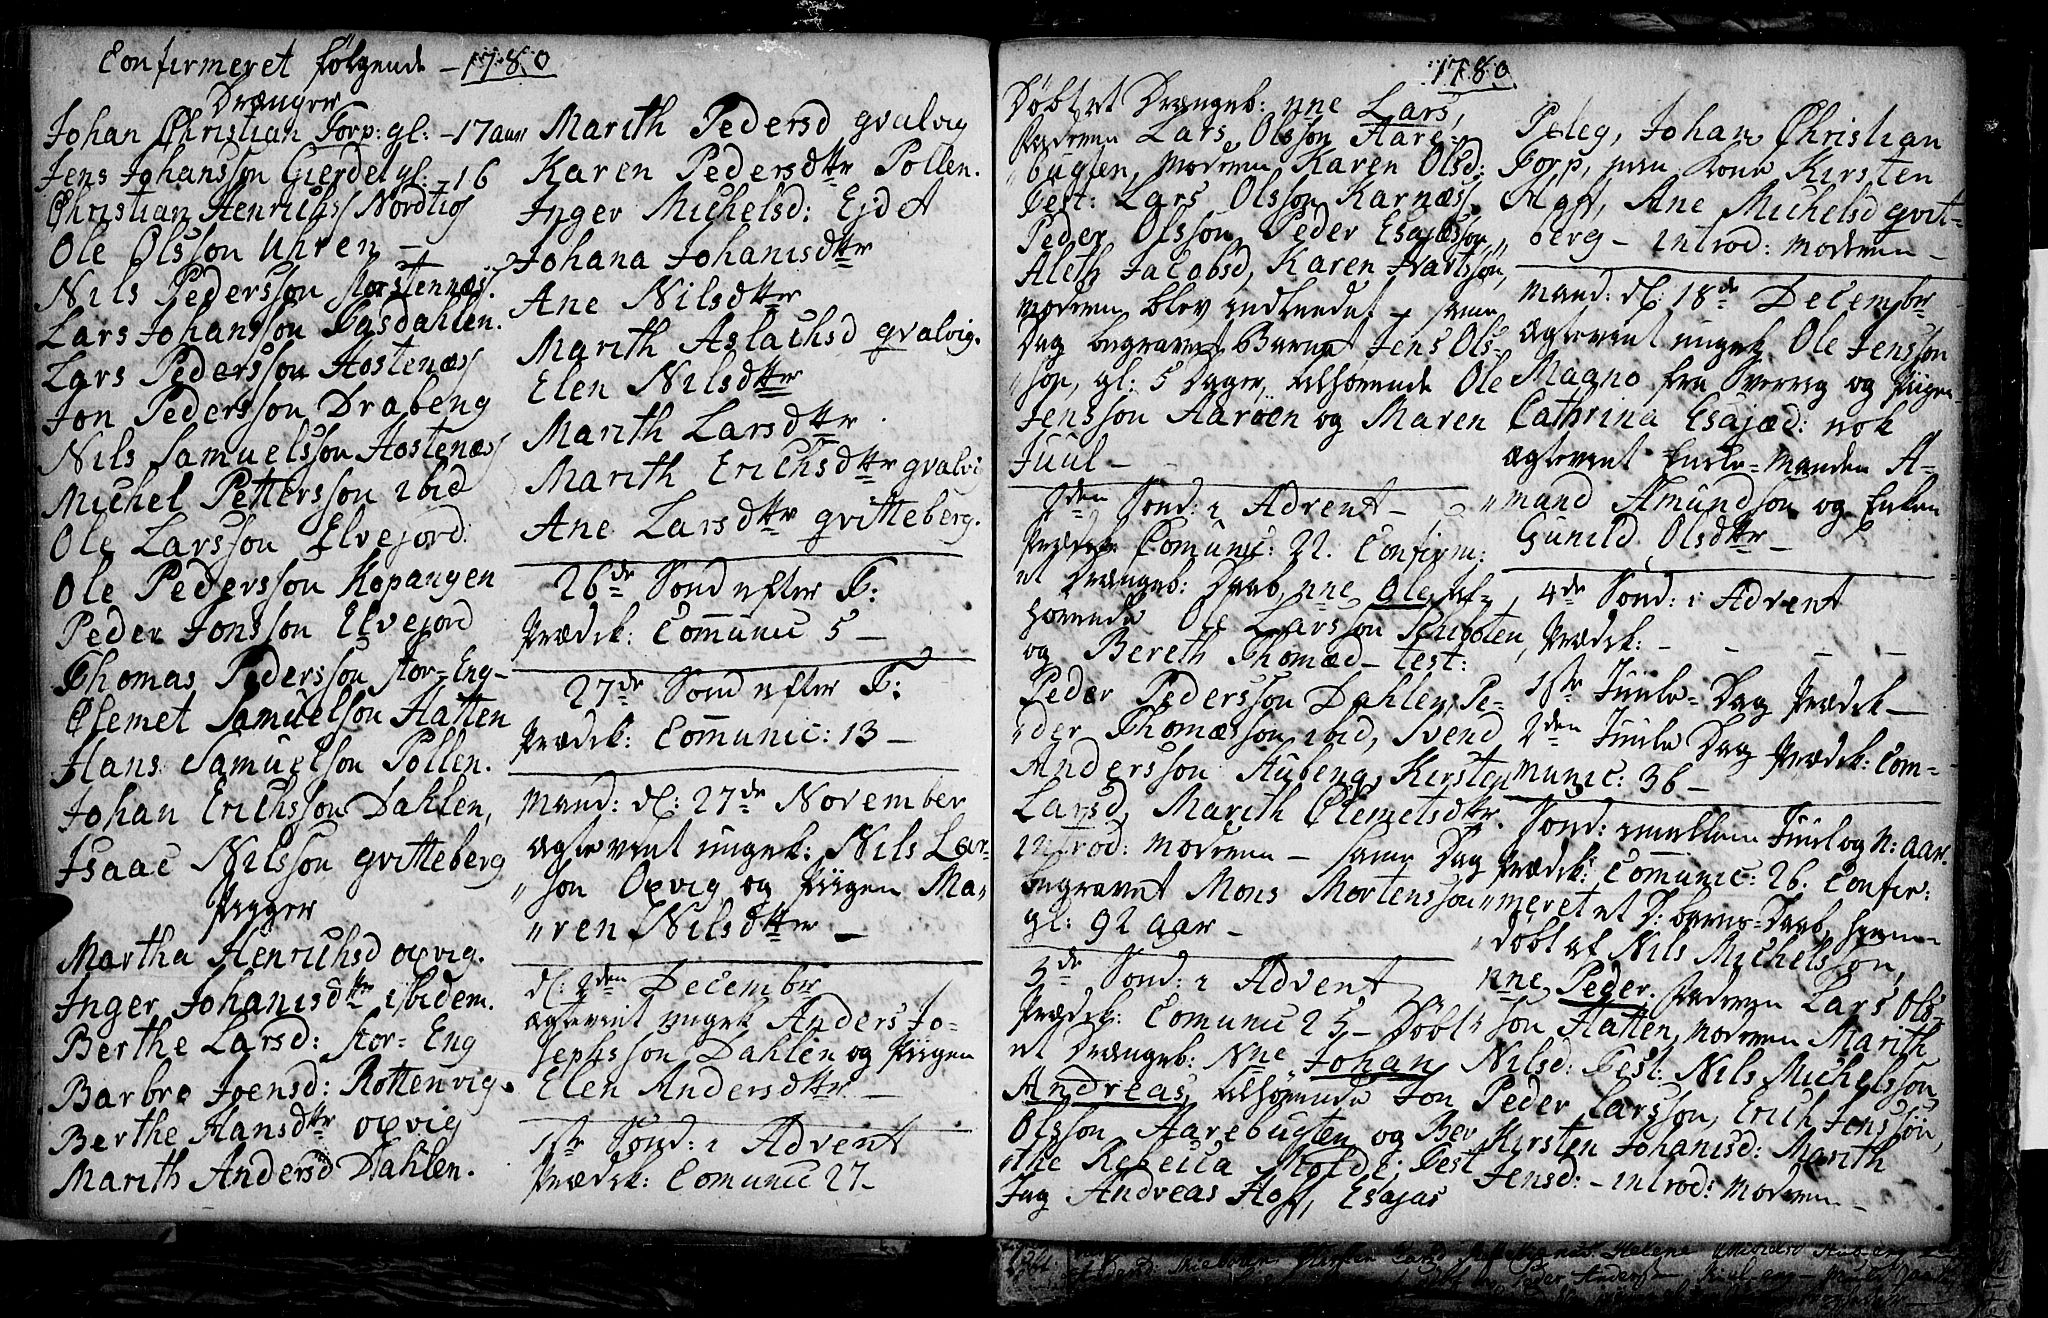 Confirmeret følgende – 1780
Drænger
Johan Christian Forp: gl: – 17 aar
Jens Johansson Gierdet gl: – 16
Christian Henrichs Nordtios
Ole Olsson Uhren –
Nils Pedersson Horstennæs.
Lars Johansson Fasdahlen.
Lars Pedersson Hostenæs
Jon Pedersson Drabeng
Nils Samuelsson Hostenæs
Michel Pettersson ibid
Ole Larsson Elvejord.
Ole Pedersson Kopangen
Peder Jonsson Elvejord
Thomas Pedersson Stor-Eng-
Clemet Samuelson Hatten
Hans Samuelson Pollen.
Johan Erichsson Dahlen,
Isaac Nilsson qvitteberg
Piger
Martha Henrichsd oxvig.
Inger Johanisdttr ibidem.
Berthe Larsd: Stor-Eng
Barbro Joensd: Rottenvig.
Berthe Hansdttr oxvig
Marith Andersd Dahlen.
Marith Pedersd qvalvig
Karen Pedersdttr Pollen.
Inger Michelsd: Ejdet
Johana Johanisdttr
Ane Nilsdttr
Marith Aslachsd qvalvig.
Elen Nilsdttr
Marith Larsdttr.
Marith Erichsdttr qvalvi
Ane Larsdttr qvitteberg.
26de Sond efter T:
Prædik: Communic 5 –
27de Sond efter T:
Prædik: Communic: 13 –
Mand: d: 27de November
ægteveyt ungek: Nils Lar-
son Oxvig og Piigen Ma-
ren Nilsdttr –
d: 2den December
ægteveyt ungek Anders Jo-
sephsson Dahlen og Piigen
Elen Andersdttr –
1ste Sond: i Advent
Prædik: Comunic 27 –
1780
Døbt et Drængeb: nne Lars,
Faderen Lars Olsson Aare-
bugten, Moderen Karen Olsd:
Test: Lars Olsson Karnæs,
Peder Olsson, Peder Esajæsson,
Aleth Jacobsd, Karen Ivarsson,
Moderen blev indleedet – samme
Dag begravet Barnet Jens Ols-
son, gl: 5 Dager, tilhørende Ole
Jensson Aarøen og Maren
Juul –
2den Sond: i Advent –
Prædik: Comunic: 22. Confirm:
et Drængeb: Daab, nne Ole til-
hørende Ole Larsson
og Bereth Thomæd – test:
Peder Pedersson Dahlen, Pe-
der Thomæsson ibid, Svend
Andersson Aubeng, Kirsten
Larsd, Marith Clemetsdttr.
introd: Moderen – samme Dag
begravet Mons Mortensson
gl: 92 aar –
3de Sond: i Advent
Prædik: Comunic 25 – Døbt
et Drængeb: Nne Johan
Andreas, tilhørende Jon
Olsson Aarebugten og Ber
the Rebecca Molde; Test
Jag Andreas Hoff, Esajas
Peleg, Johan Christian
Forp, min Kone Kirsten
Hoff, Ane Michelsd qvit-
berg – introd: Moderen –
Mand: d: 18de December
ægteveyt ungek Ole Jensson
Magno fra Sverrig og Piigen
Cathrina Esajæd: nok
ægteveyt Enke-Manden A-
mund Amundson og Enken
Gunild Olsdttr –
4de Sond: i Advent
Prædik: – – – –
1ste Juule-Dag Prædik –
2den Juule Dag Prædik: Com-
munic: 36 –
Sond: imellem Juul og N: aar.
Prædik: Communic: 26. Confir:
meret et D: barns-Daab, hjemme
døbt af Nils Michelsson,
nne Peder. Faderen Lars Ols-
son Hatten, Moderen Marith
Nilsd: Test: Nils Michelsson
Peder Larsson, Erich Jensson,
Kirsten Johanisd: Marith
Jensd: – introd: Moderen –